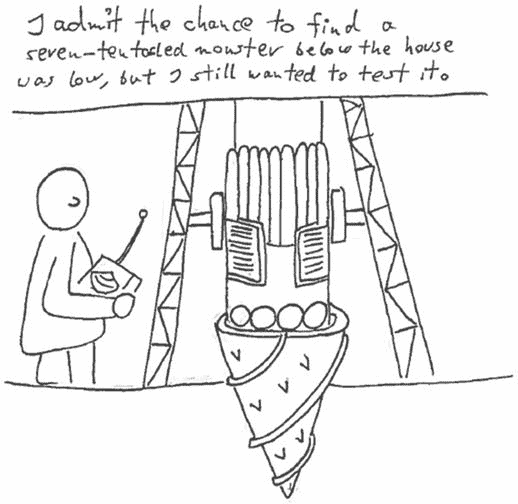 I admit the chance to find a
seven-tentacled monster below the house
was low, but I still wanted to test it.